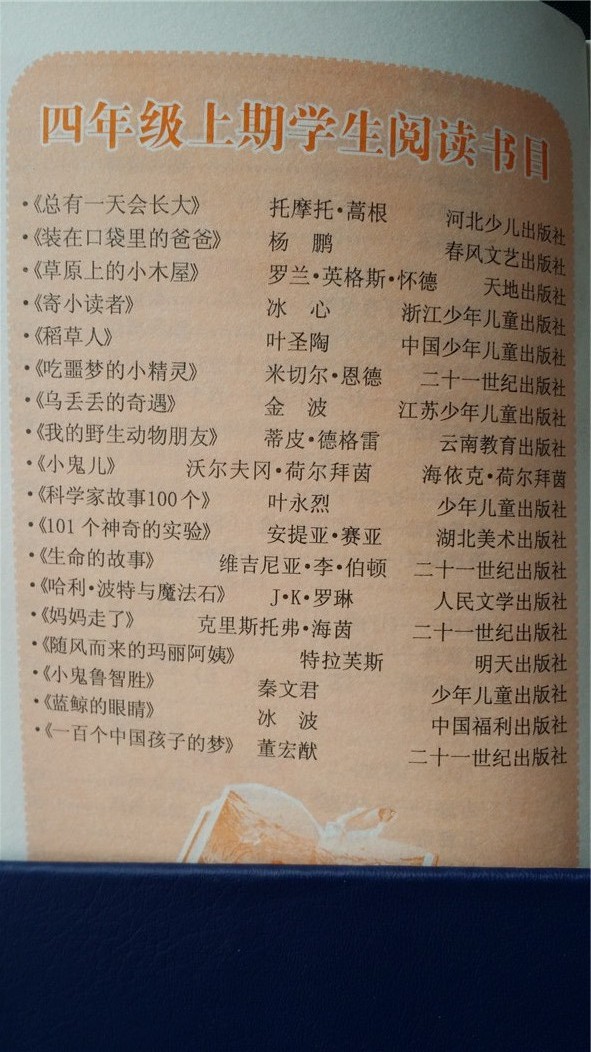 四年级上期学生阅读书目
·《总有一天会长大》 托摩托·蒿根 河北少儿出版社
·《装在口袋里的爸爸》 杨 鹏 春风文艺出版社
·《草原上的小木屋》 罗兰·英格斯·怀德 天地出版社
·《寄小读者》 冰 心 浙江少年儿童出版社
·《稻草人》 叶圣陶 中国少年儿童出版社
·《吃噩梦的小精灵》 米切尔·恩德 二十一世纪出版社
·《乌丢丢的奇遇》 金 波 江苏少年儿童出版社
·《我的野生动物朋友》 蒂皮·德格雷 云南教育出版社
·《小鬼儿》 沃尔夫冈·荷尔拜茵 海依克·荷尔拜茵
·《科学家故事100个》 叶永烈 少年儿童出版社
·《101个神奇的实验》 安提亚·赛亚 湖北美术出版社
·《生命的故事》 维吉尼亚·李·伯顿 二十一世纪出版社
·《哈利·波特与魔法石》 J·K·罗琳 人民文学出版社
·《妈妈走了》 克里斯托弗·海茵 二十一世纪出版社
·《随风而来的玛丽阿姨》 特拉芙斯 明天出版社
·《小鬼鲁智胜》 秦文君 少年儿童出版社
·《蓝鲸的眼睛》 冰 波 中国福利出版社
·《一百个中国孩子的梦》 董宏猷 二十一世纪出版社